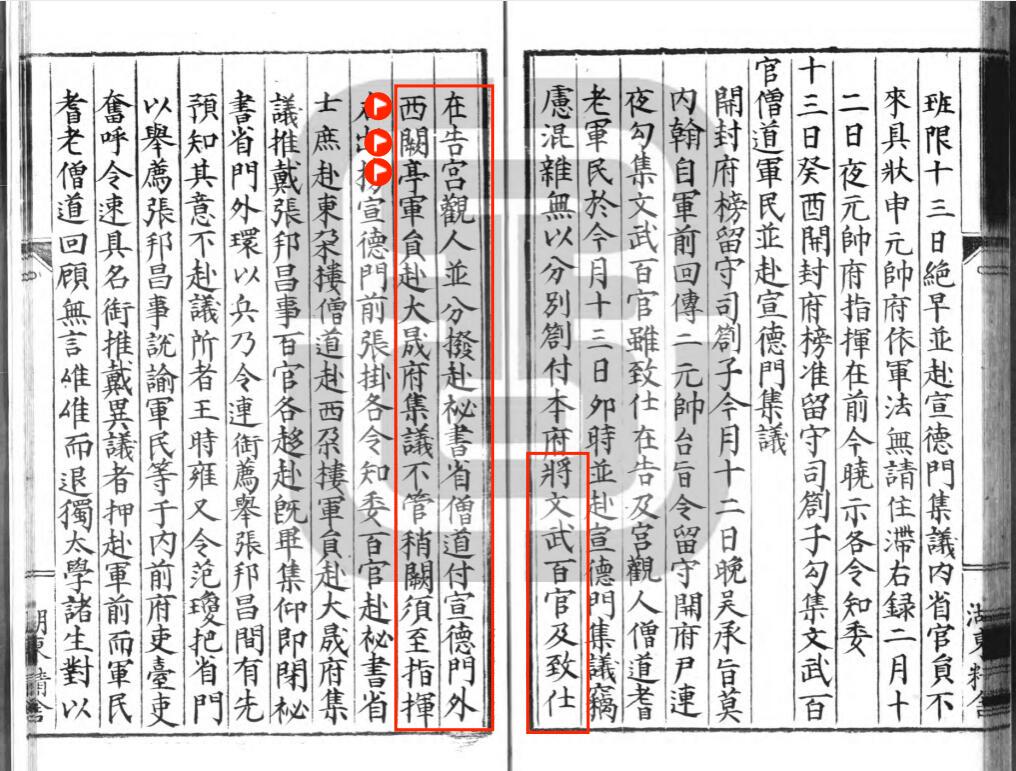 班限十三日絕早並赴宣德門集議內省官員不
來具狀申元帥府依軍法無請住滯右録二月十
二日夜元帥府指揮在前今曉示各令知委
十三日癸酉開封府榜准留守司劄子勾集文武百
官僧道軍民並赴宣德門集議
開封府榜留守司劄子今月十二日晚吳承旨莫
內翰自軍前回傳二元帥台旨令留守開府尹連
夜勾集文武百官雖致仕在告及宮觀人僧道耆
老軍民於今月十三日卯時並赴宣德門集議竊
慮混雜無以分別劄付本府將文武百官及致仕
在告宮觀人並分撥赴祕書省僧道付宣德門外
西闕亭軍員赴大晟府集議不管稍闕須至指揮
宣德門前張掛各令知委百官赴祕書省
士庶赴東朶樓僧道赴西朶樓軍員赴大晟府集
議推戴張邦昌事百官各趍赴旣畢集仰即閉祕
書省門外環以兵乃令連銜薦舉張邦昌間有先
預知其意不赴議所者王時雍又令范瓊把省門
以舉薦張邦昌事說諭軍民等于內前府吏臺吏
奮呼令速具名銜推戴異議者押赴軍前而軍民
耆老僧道回顧無言唯唯而退獨太學諸生對以